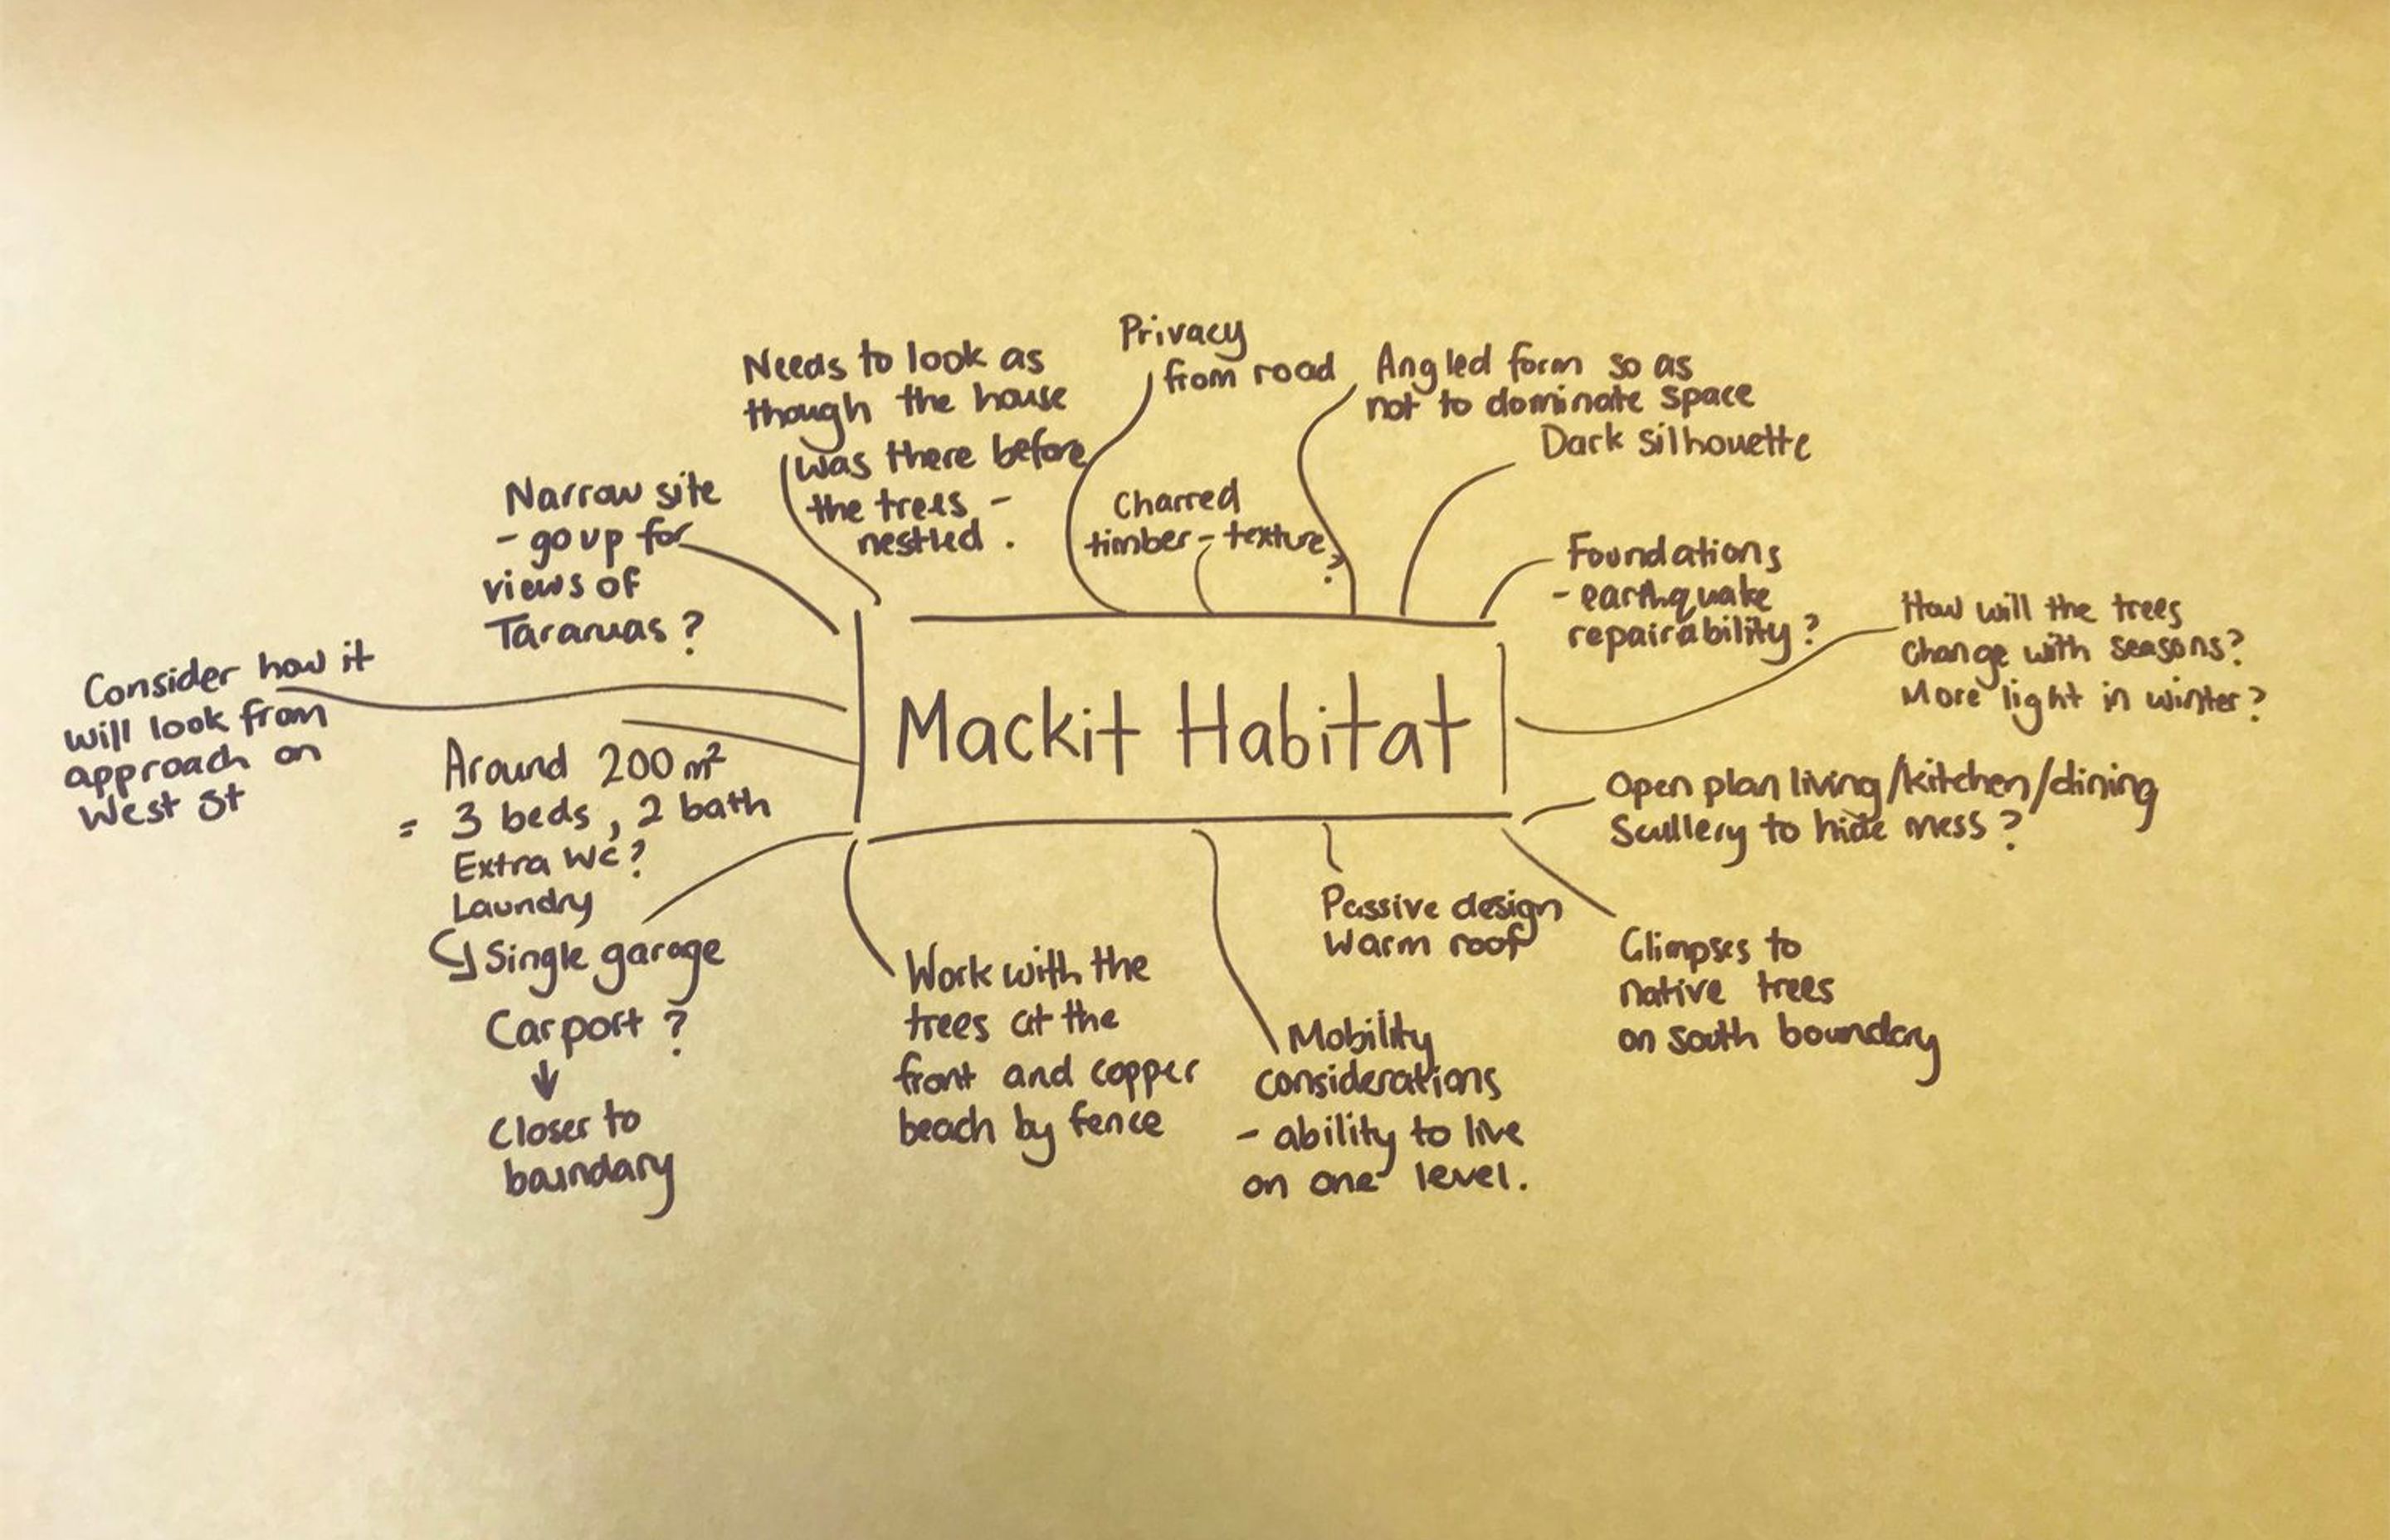 Mackit Habitat
Needs to look as
though the house
was there before
the trees -
nestled.
Privacy
from road
Charred
timber - texture?
Angled form so as
not to dominate space
Dark silhouette
Foundations
- earthquake
repairability?
How will the trees
change with seasons?
More light in winter?
Open plan living/kitchen/dining
Scullery to hide mess?
Glimpses to
native trees
on south boundary
Passive design
Warm roof
Mobility
considerations
- ability to live
on one level.
Work with the
trees at the
front and copper
beach by fence
Around 200 m²
= 3 beds, 2 bath
Extra WC?
Laundry
Single garage
Carport?
Closer to
boundary
Consider how it
will look from
approach on
West St
Narrow site
- go up for
views of
Tararuas?